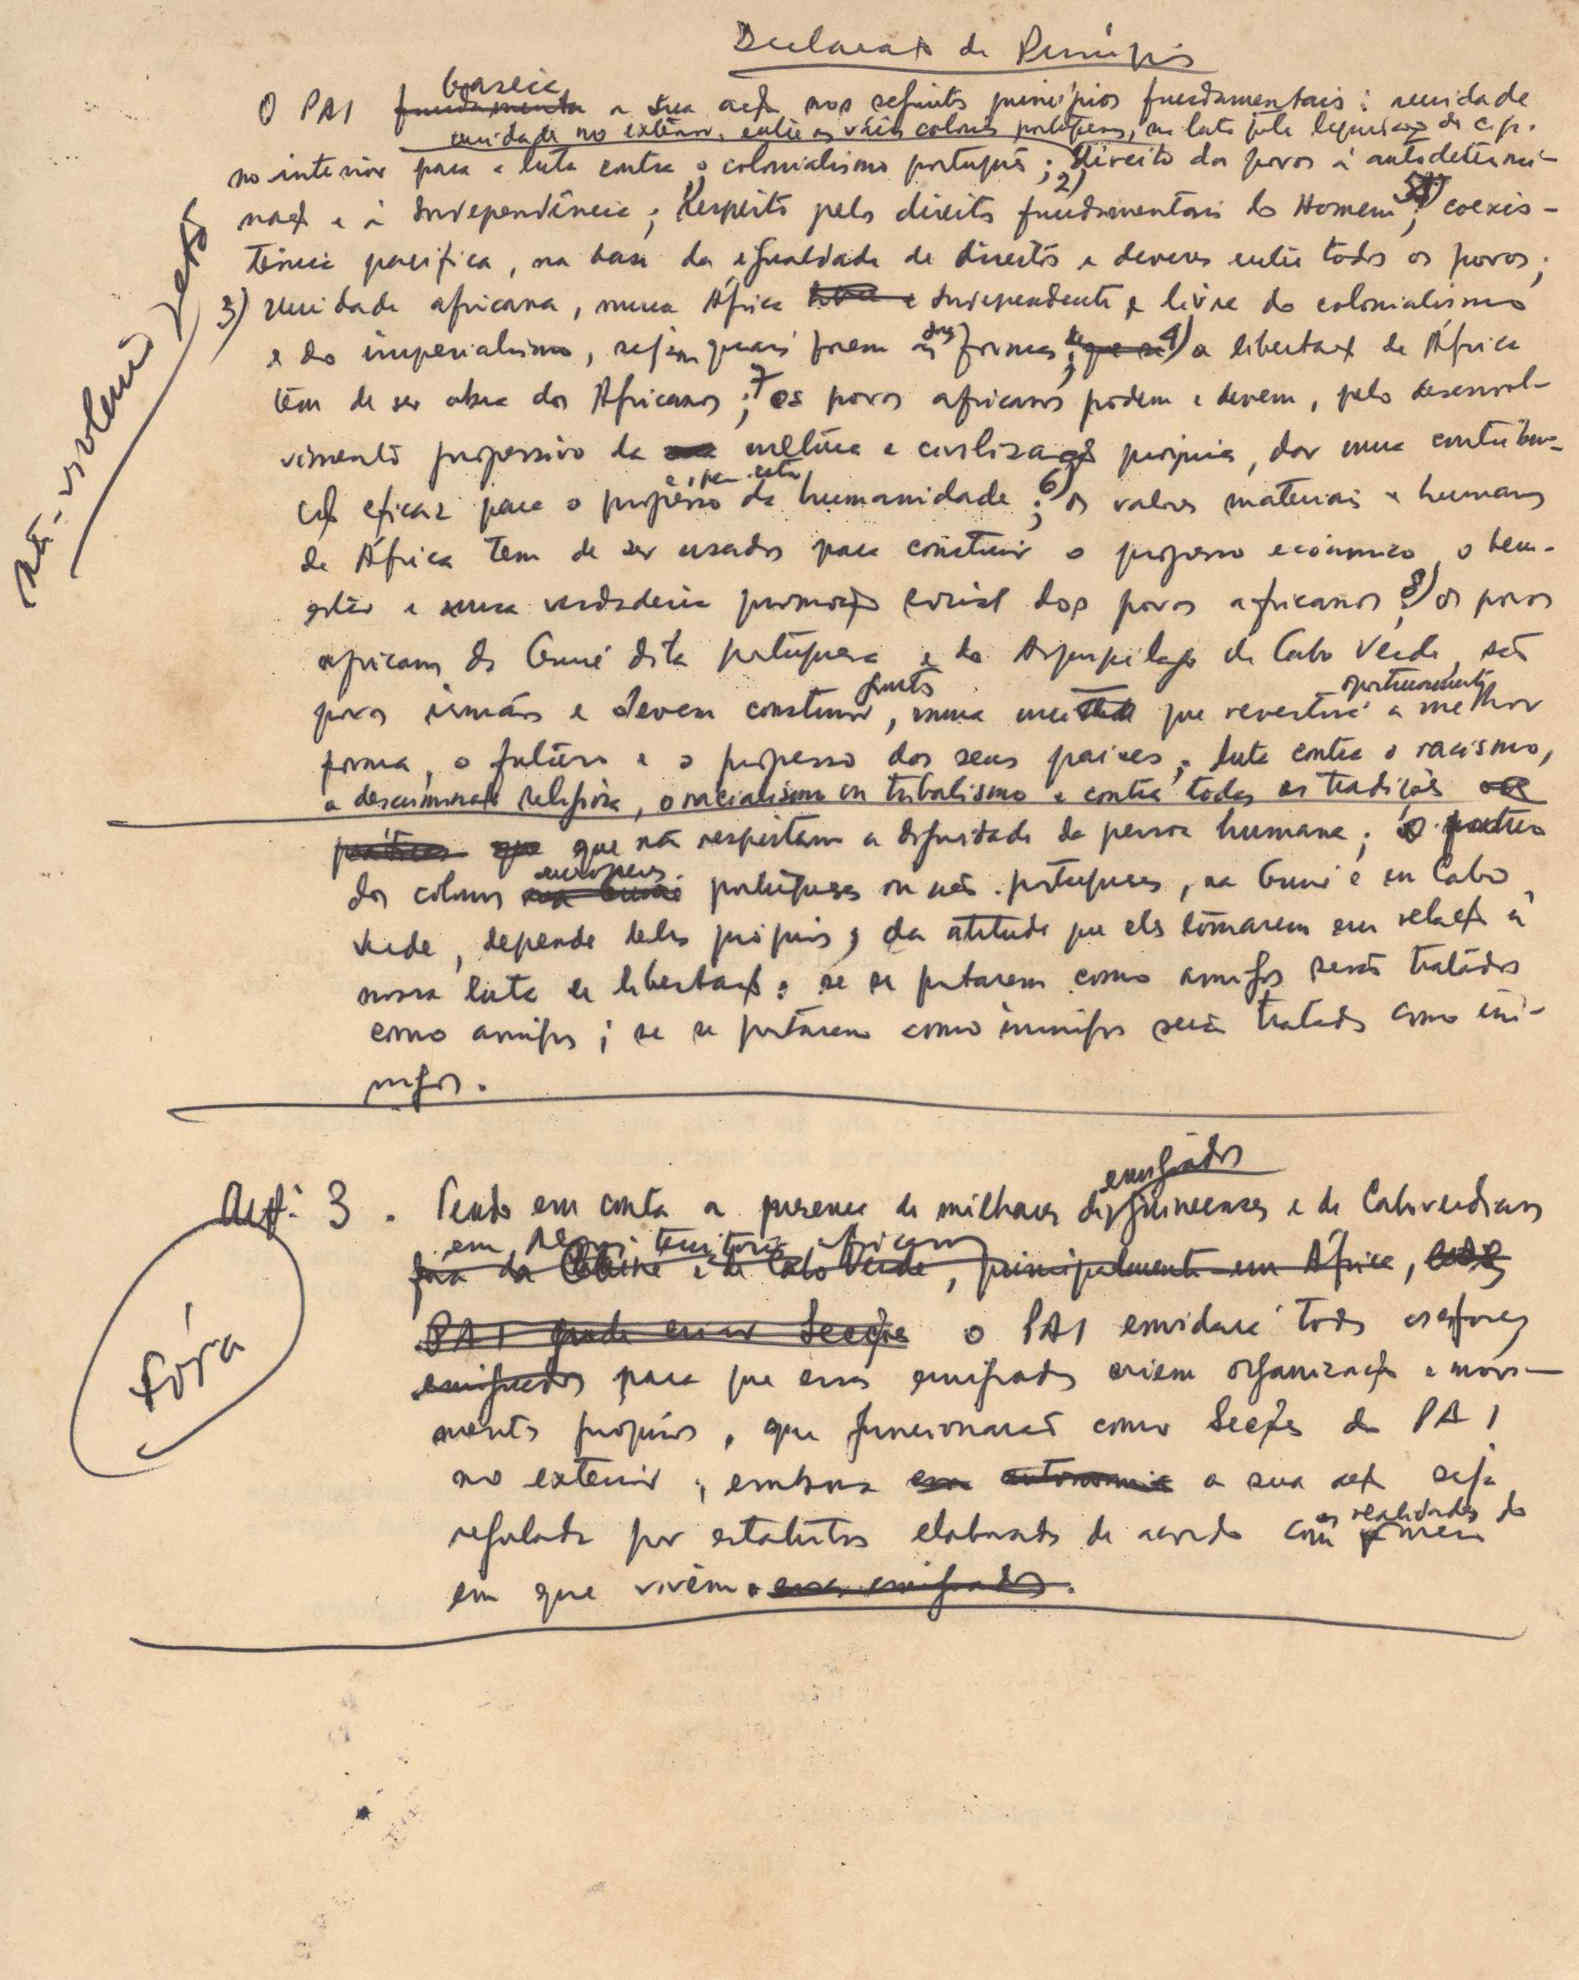 Declaração de Princípios
O PAI fundamenta baseia a sua acção nos seguintes princípios fundamentais: unidade
unidade no exterior, entre as várias colonias portuguesas, na luta pela liquidação do c.p.
no interior para a luta contra o colonialismo português; 1) direito dos povos à autodetermi-
nação e à Independência; 2) Respeito pelos direitos fundamentais do Homem; 5) coexis-
tência pacífica, na base da igualdade de direitos e deveres entre todos os povos;
3) unidade africana, numa África livre e Independente e livre do colonialismo
e do imperialismo, sejam quais forem as suas formas; que se 4) a libertação de África
tem de ser obra dos Africanos; 7 os povos africanos podem e devem, pelo desenvol-
vimento progressivo da sua cultura e civilização própria, dar uma contribui-
ção eficaz para o progresso da humanidade; 6) os valores materiais e humanos
de África tem de ser usados para construir o progresso económico, o bem-
estar e uma verdadeira promoção social dos povos africanos; 8) os povos
africanos da Guiné dita portuguesa e do Arquipélago de Cabo Verde, são
povos irmãos e devem construir juntos, numa unidade que revestirá oportunamente a melhor
forma, o futuro e o progesso dos seus países; luta contra o racismo,
a descriminação religiosa, o racialismo ou tribalismo e contra todas as tradições ou
práticas que que não respeitam a dignidade da pessoa humana; o futuro
dos colonos na Guiné europeus portugueses ou não-portugueses, na Guiné e em Cabo
Verde, depende deles próprios, da atitude que eles tomarem em relação à
nossa luta de libertação: se se portarem como amigos serão tratados
como amigos; se se portarem como inimigos serão tratados como ini-
migos.
não-violenta
Artº 3. Tendo em conta a presença de milhares de emigrados guineenses e de Caboverdianos
em territórios africanos
fora da Guiné e de Cabo Verde, principalmente em África,
PAI pode criar Secções o PAI envidará todos os esforços
emigrados para que esses emigrados criem organizações e movi-
mentos próprios, que funcionarão como Secções do PAI
no exterior, embora em autonomia a sua acção seja
regulada por estatutos elaborados de acordo com as realidades do meio
em que vivem. esses emigrados.
fóra